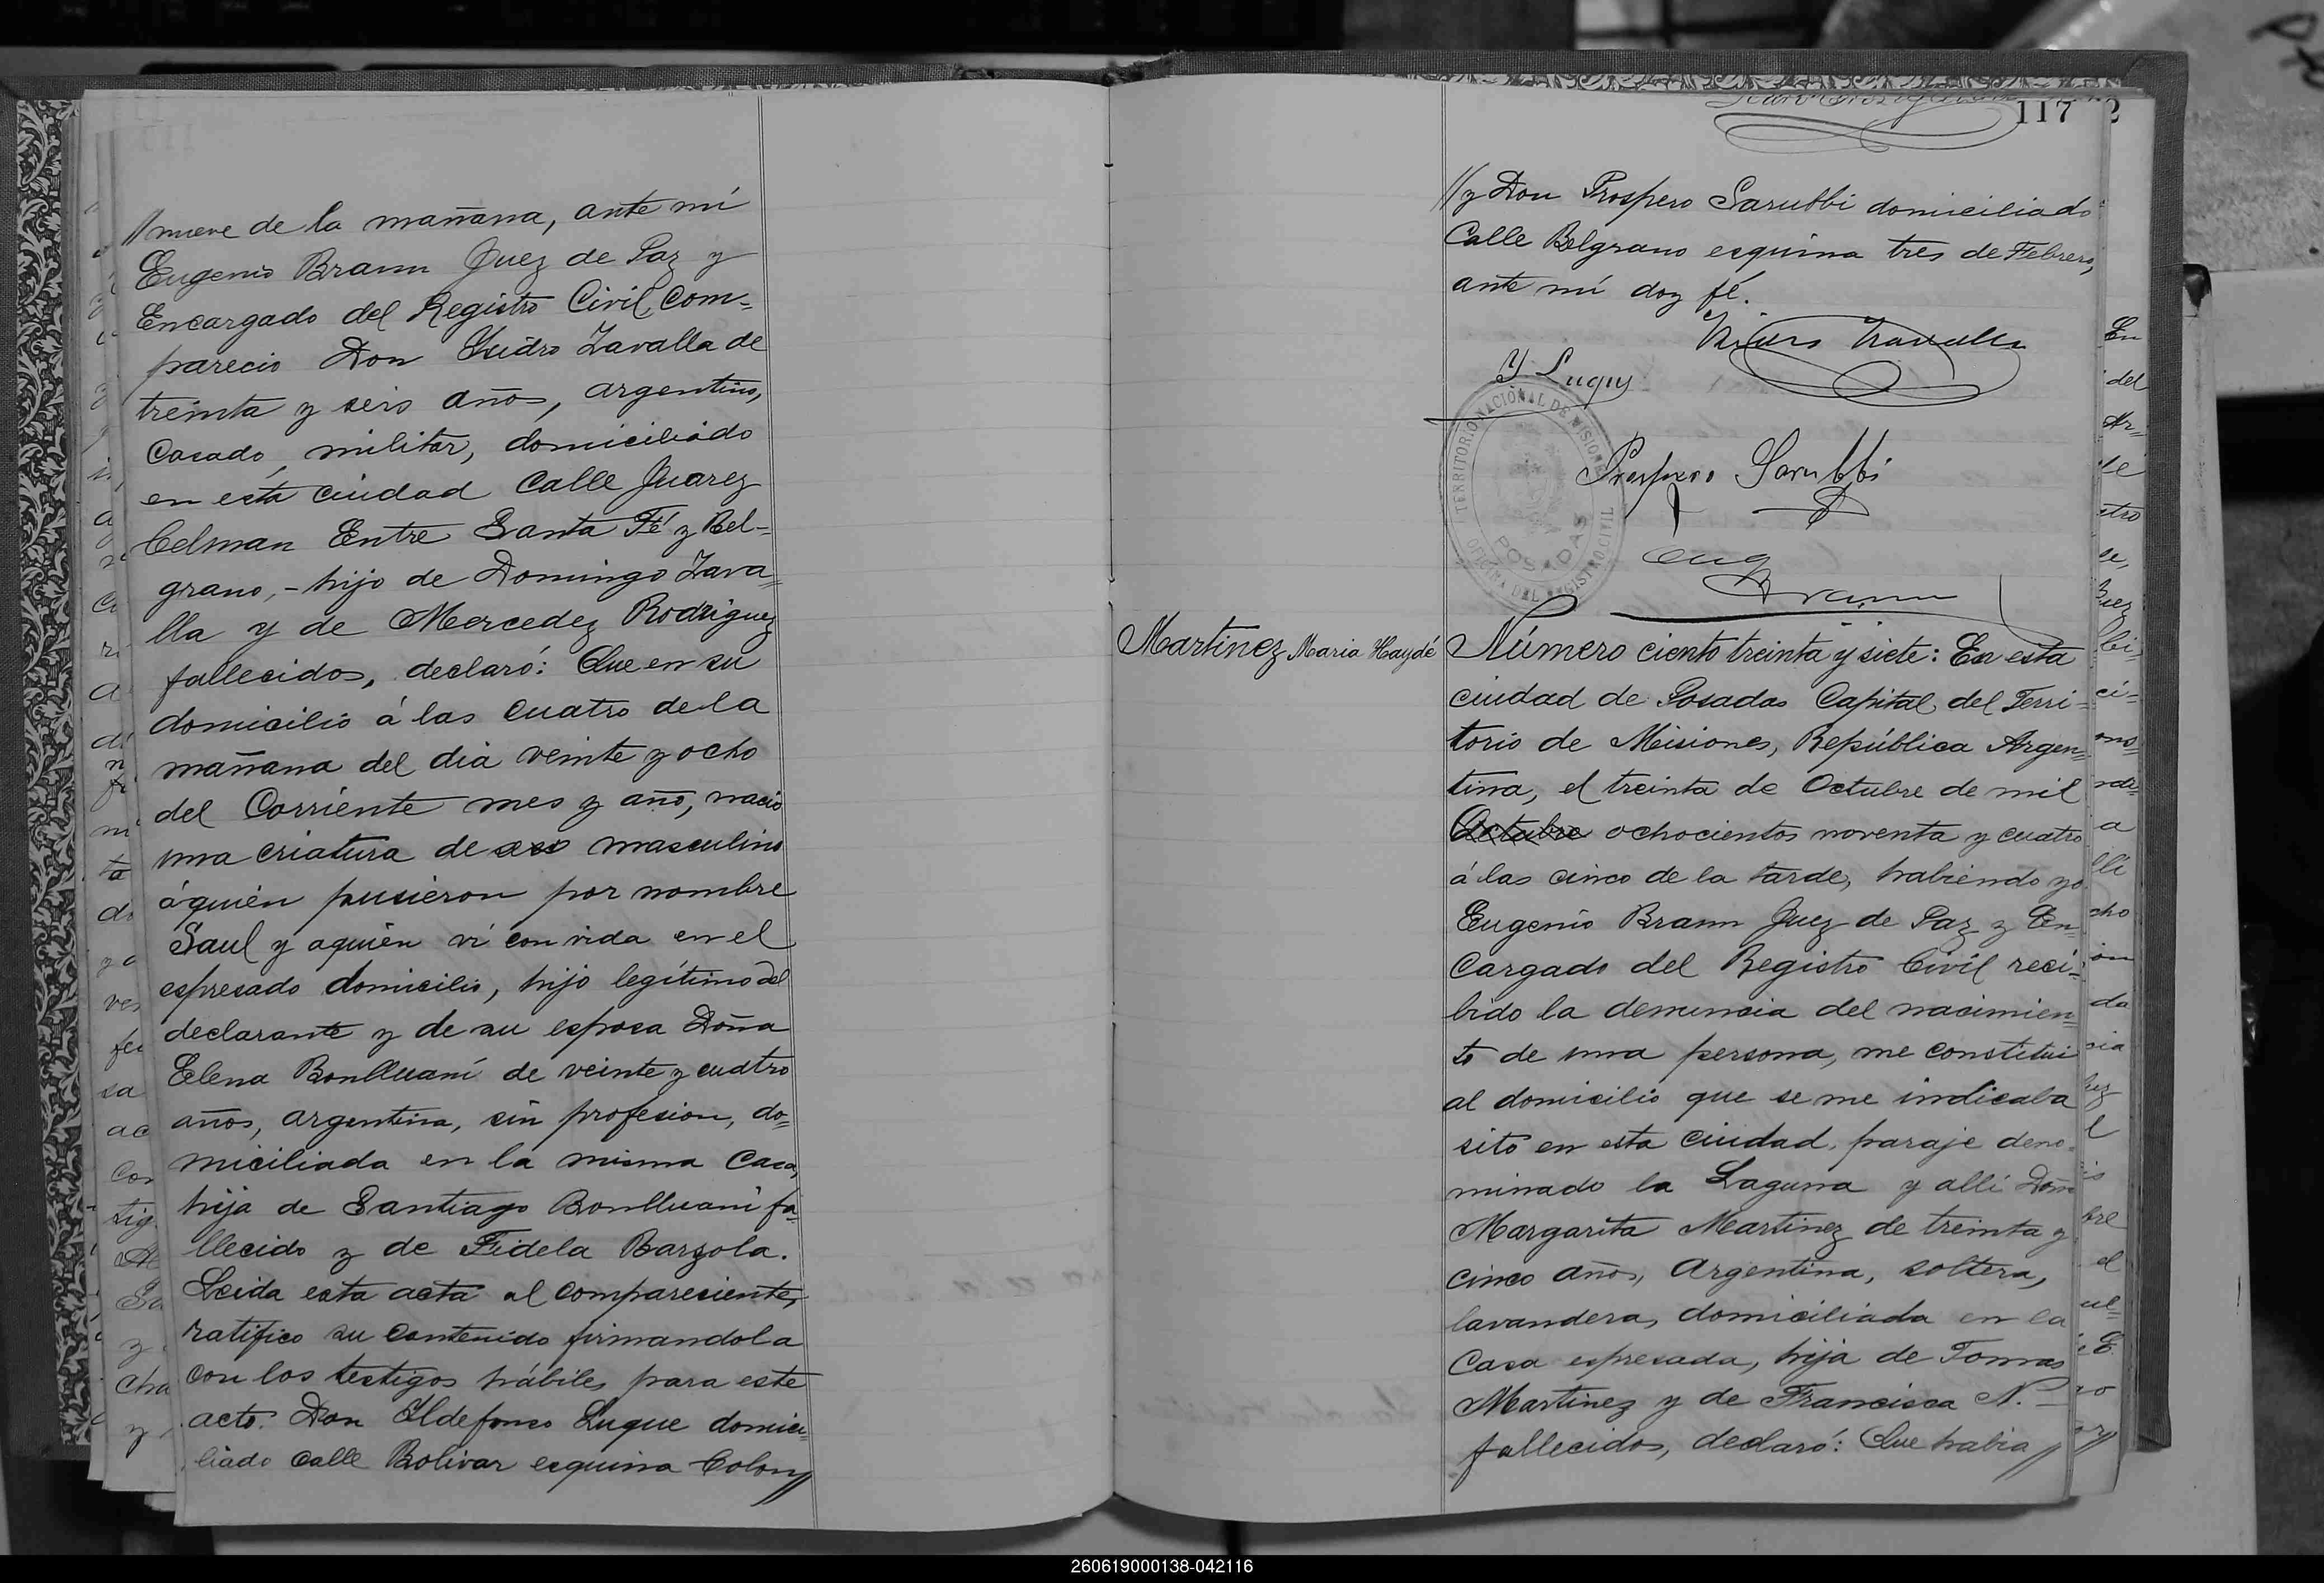 // nueve de la mañana, ante mí
Eugenio Bramm Juez de Paz y
Encargado del Registro Civil, com=
parecio Don Isidro Zavalla de
treinta y seis años, argentino,
Casado, militar, domiciliado
en esta ciudad Calle Juarez
Celman Entre Santa Fé y Bel-
grano, - hijo de Domingo Zava=
lla y de Mercedez Rodriguez
fallecidos, declaró: Que en su
domicilio á las cuatro de la
mañana del dia veinte y ocho
del Corriente mes y año, nació
una criatura de sexo masculino
áquién pusieron por nombre
Saul y aquién ví con vida en el
espresado domicilio, hijo legítimo del
declarante y de su esposa Doña
Elena de veinte y cuatro
años, argentina, sin profesion, do=
miciliada en la misma Casa,
hija de Santiago fa=
llecido y de Fidela Barzola.
Leida esta acta al compareciente,
ratifico su contenido firmandola
con los testigos hábiles para este
acto. Don Ildefonso Luque domici=
liado calle Bolivar esquina Colon //
117
// y Don Prospero Sarubbi domiciliado
Calle Belgrano esquina tres de Febrero,
ante mí doy fé.
Isidro Zavalla
Y Luque
TERRITORIO NACIONAL DE MISIONES
OFICINA DEL REGISTRO CIVIL
POSADAS
Prospero Sarubbi
Eug Bramm
Martinez Maria Haydé
Número ciento treinta y siete: En esta
ciudad de Posadas Capital del Terri=
torio de Misiones, República Argen=
tina, el treinta de Octubre de mil
Octubre ochocientos noventa y cuatro
á las cinco de la tarde, habiendo yo
Eugenio Bramm Juez de Paz y En=
cargado del Registro Civil reci=
bido la denuncia del nacimien=
to de una persona, me constitui
al domicilio que se me indicaba
sito en esta ciudad, paraje deno=
minado la Laguna y allí Doña
Margarita Martinez de treinta y
cinco años, Argentina, soltera,
lavandera, domiciliada en la
Casa espresada, hija de Tomas
Martinez y de Francisca N. -
fallecidos, declaró: Que habia //
260619000138-042116